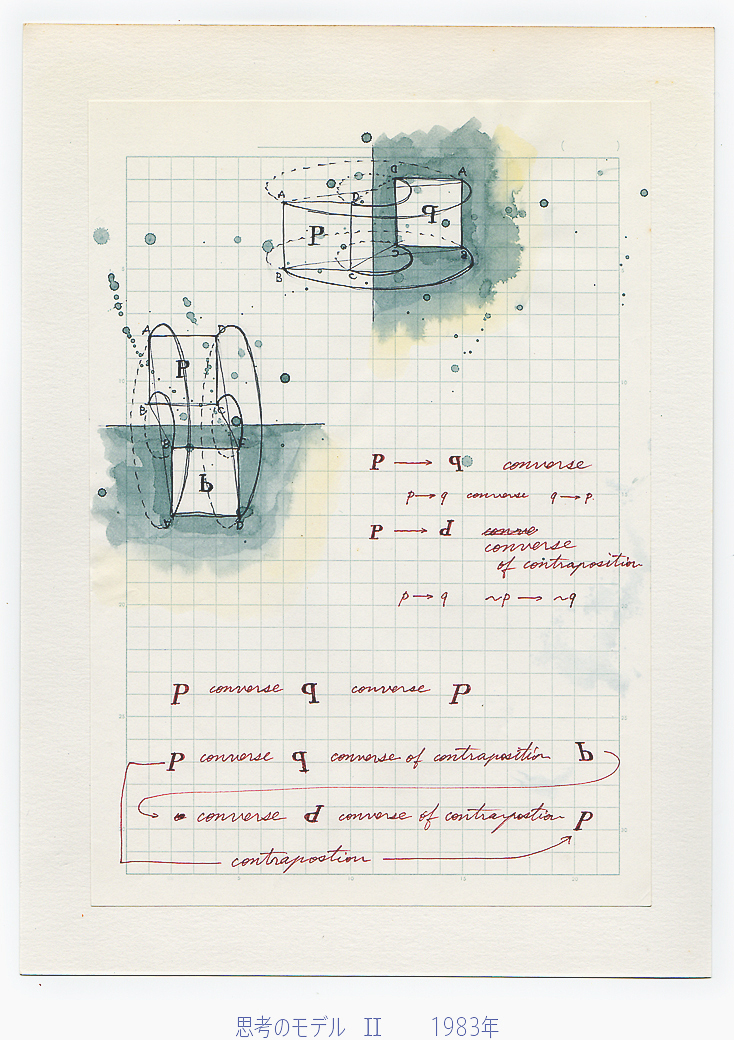 A D D A
P q
B C C B
A D
P
B C
B C
b
A D
P → q converse
p → q converse q → p.
P → d conve
converse
of contraposition
p → q ~p → ~q
P converse q converse P
P converse q converse of contraposition b
converse d converse of contrapostion P
contrapostion
思考のモデル II 1983年